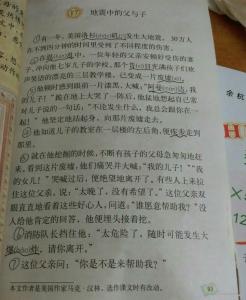 17 地震中的父与子
①有一年，美国洛杉矶发生大地震，30万
人在不到四分钟的时间里受到了不同程度的伤害。
冲向他七岁儿子的学校。那个
声笑语的漂亮的三层教学楼，已变成一片废墟。
③他顿时感到眼前一片漆黑，大喊：“阿曼达，我
的儿子！”跪在地上大哭了一阵后，他猛地想起自己常
对儿子说的一句话：“不论发生什么，我总会跟你在一
起！”他坚定地站起身，向那片废墟走去。
④他知道儿子的教室在一层楼的左后角，便疾步走到
那里。
⑤就在他挖掘的时候，不断有孩子的父母急匆匆地赶
来，看到这片废墟，他们痛哭并大喊：“我的儿子！”“我
的女儿！”哭喊过后，便绝望地离开了。有些人上来拉
住这位父亲，说：“太晚了，没有希望了。”这位父亲双
眼直直地看着这些好心人，问道：“谁愿意帮助我？”没
人给他肯定的回答，他便埋头接着挖。
⑥消防队长挡住他：“太危险了，随时可能发生大
爆炸，请你离开。”
⑦这位父亲问：“你是不是来帮助我？”
本文作者是美国作家马克·汉林，选作课文时有改动。
93